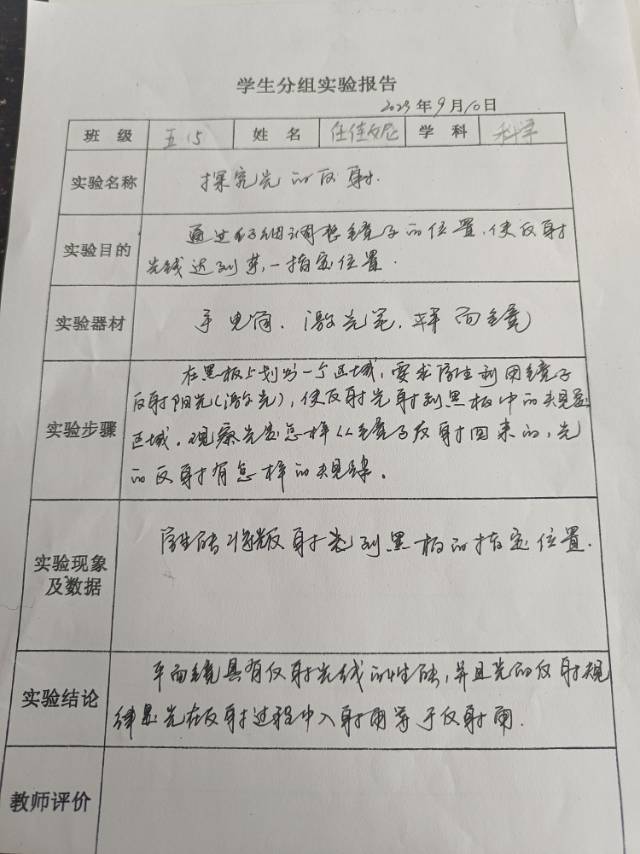 学生分组实验报告
2023年9月10日
班级 五15 姓名 任佳妮 学科 科学
实验名称 探究光的反射.
实验目的 通过仔细调整镜子的位置,使反射
光线达到某一指定位置.
实验器材 手电筒.激光笔.平面镜
实验步骤 在黑板上划出一个区域,要求学生利用镜子
反射阳光(激光),使反射光射到黑板中的规定
区域.观察光是怎样从镜子反射回来的,光
的反射有怎样的规律.
实验现象 学生能将反射光到黑板的指定位置.
及数据
实验结论 平面镜具有反射光线的性能,并且光的反射规
律是光在反射过程中入射角等于反射角.
教师评价